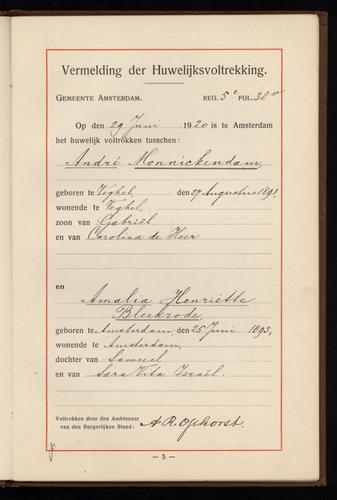 Vermelding der Huwelijksvoltrekking.
GEMEENTE AMSTERDAM. REG. 5e FOL. 38vo
Op den 29 Juni 1920 is te Amsterdam
het huwelijk voltrokken tusschen:
André Monnickendam,
geboren te Veghel, den 27 Augustus 1891,
wonende te Veghel,
zoon van Gabriël
en van Carolina de Heer
en
Amalia Henriëtte
Bleekrode,
geboren te Amsterdam, den 25 Juni 1893,
wonende te Amsterdam,
dochter van Samuel
en van Sara Vita Israël.
Voltrokken door den Ambtenaar
van den Burgerlijken Stand: A.R. Ophorst.
— 5 —